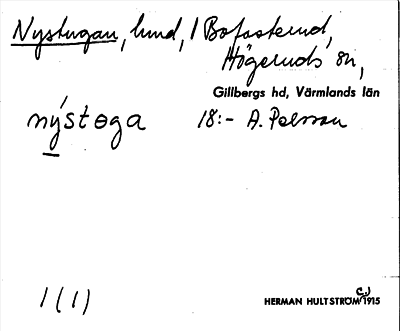 Nystugan, lund, / Bofasterud,
Högeruds sn,
Gillbergs hd, Värmlands län
nýstøga 18:- A. Persson
1(1)
HERMAN HULTSTRÖM 1915